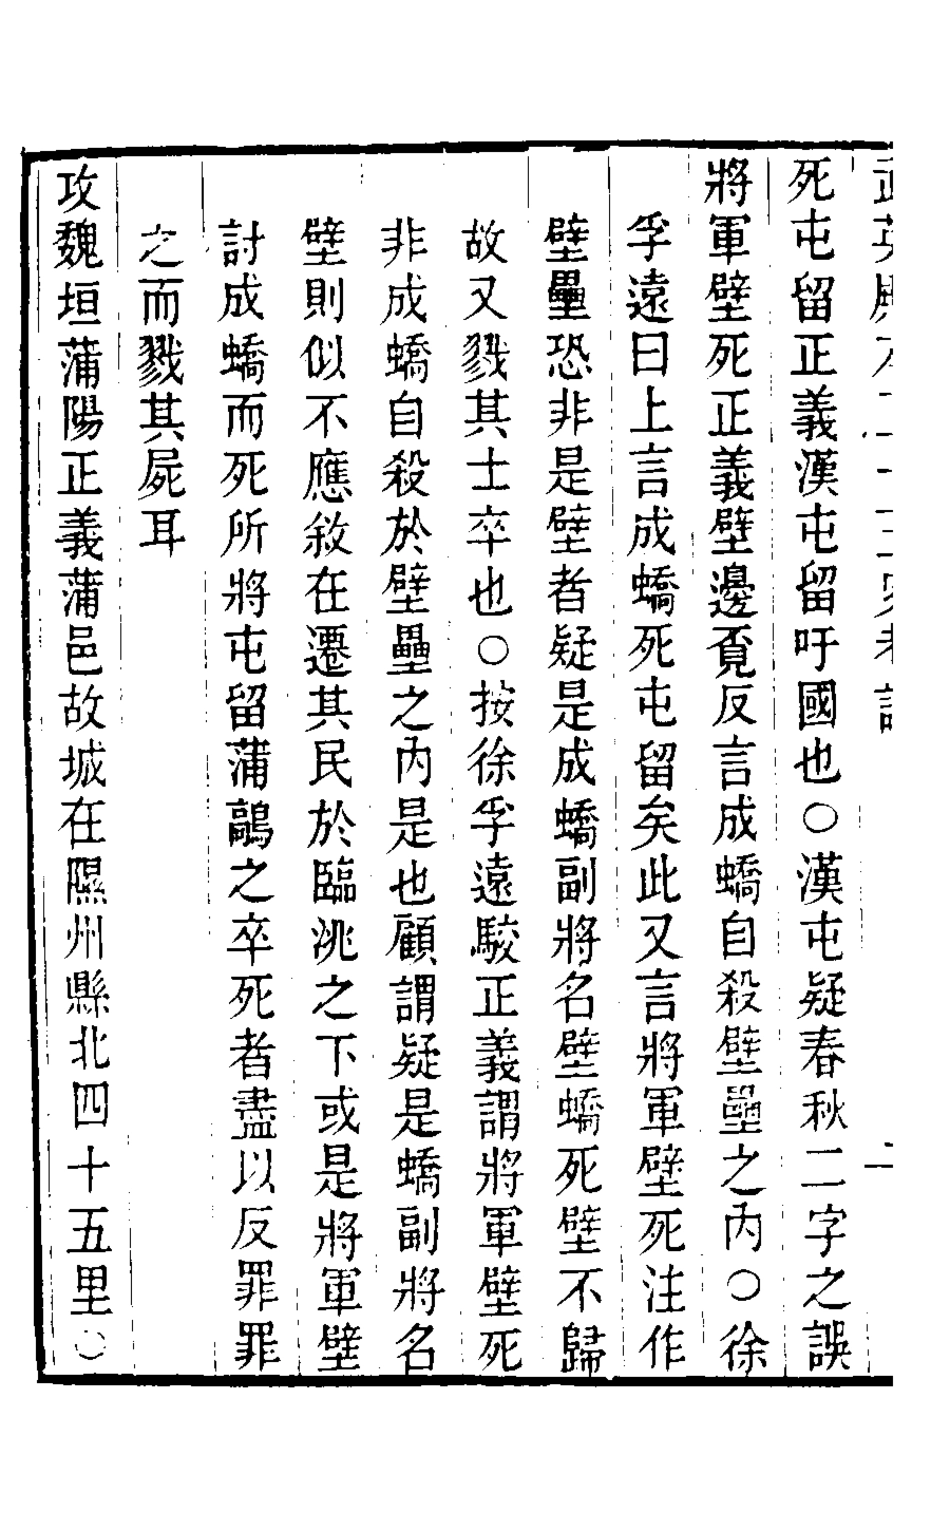 武英殿本二十三史考證
死屯留正義漢屯留吁國也○漢屯疑春秋二字之誤
將軍壁死正義壁邊覔反言成蟜自殺壁壘之內○徐
孚遠曰上言成蟜死屯留矣此又言將軍壁死注作
壁壘恐非是壁者疑是成蟜副將名壁蟜死壁不歸
故又戮其士卒也○按徐孚遠駮正義謂將軍壁死
非成蟜自殺於壁壘之內是也顧謂疑是蟜副將名
壁則似不應敘在遷其民於臨洮之下或是將軍壁
討成蟜而死所將屯留蒲鶮之卒死者盡以反罪罪
之而戮其屍耳
攻魏垣蒲陽正義蒲邑故城在隰州縣北四十五里○